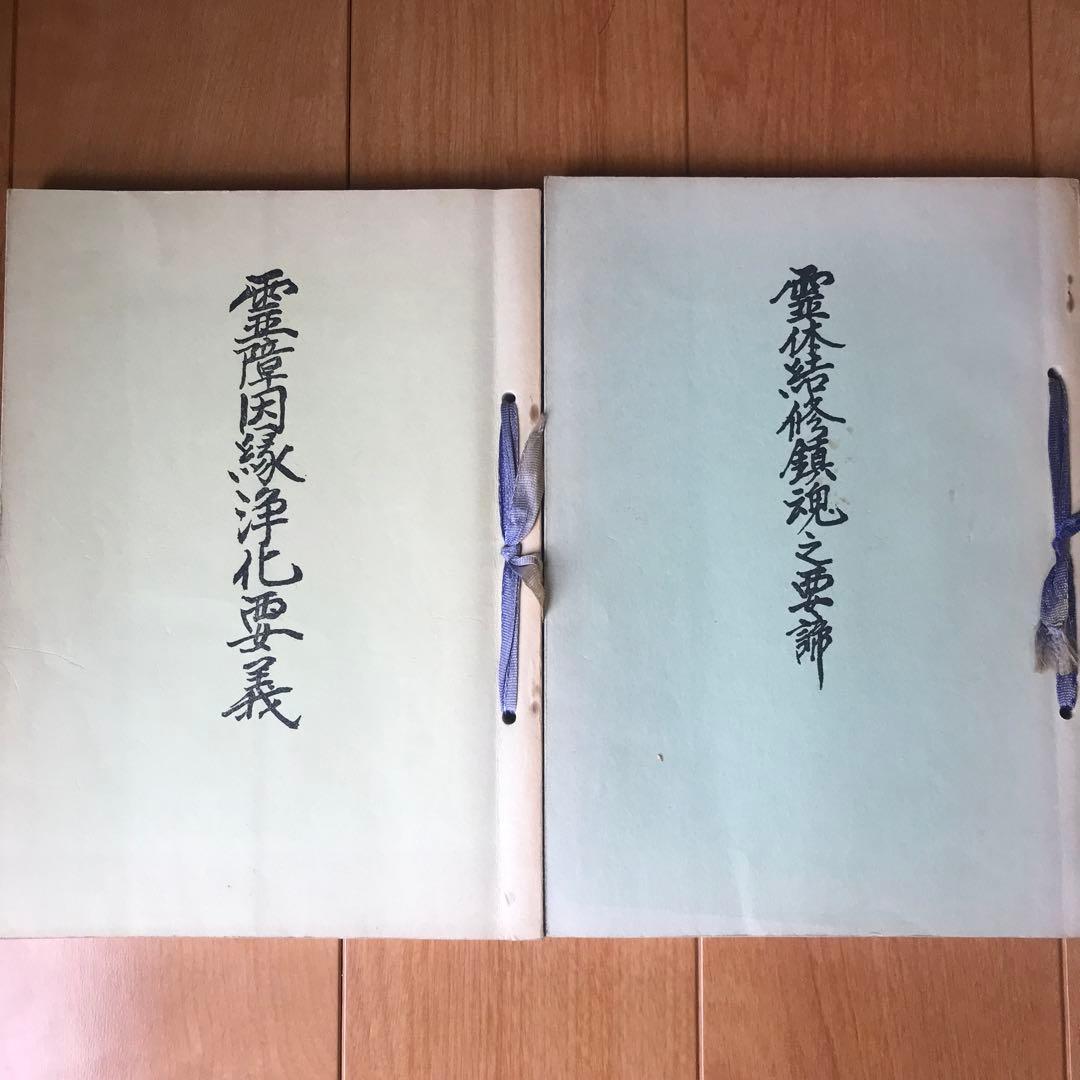 霊体結修鎮魂之要諦
霊障因縁浄化要義